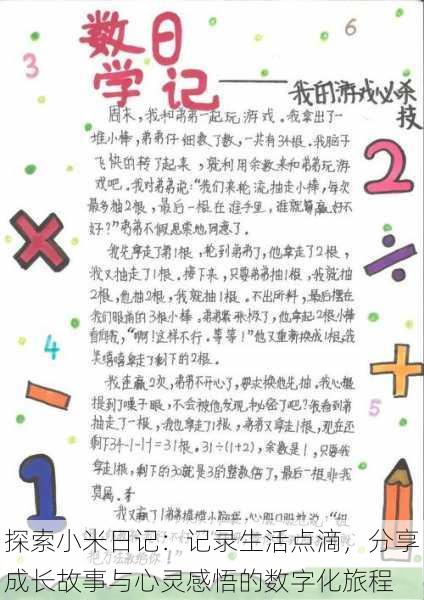 数学日记
——我的游戏必杀技
3
6
周末,我和弟弟一起玩游戏。我拿出了一
堆小棒,弟弟仔细数了数,一共有34根。我脑子
飞快的转了起来,就利用余数来和弟弟玩游
戏吧。我对弟弟说:“我们来轮流抽走小棒,每次
最多抽2根,最后一根在谁手里,谁就算赢,好不
好?”弟弟不假思索地同意了。
2
×
÷
我先拿走了第1根,轮到弟弟了,他拿走了2根,
我又抽走了1根。接下来,只要弟弟抽1根,我就抽
2根,他抽2根,我就抽1根。不出所料,最后摆在
我们眼前的3根小棒,弟弟
了,他拿起2根小棒
“啊!这样不行。等等!”他又重新换成1根。我
笑嘻嘻拿走了剩下的2根。
4
+
-
5
1
我连赢2次,弟弟不开心了,要求换他先抽。我心都
提到了嗓子眼,不会被他发现秘密了吧?我看到弟弟
抽走了一根,我也拿走了1根,弟弟又拿走1根,现在还
剩下34-1-1-1=31根。31÷(1+2),余数是1,只要我
拿走1根,剩下的30就是3的整数倍了,最后一根非我
莫属。
我又赢了!弟弟
探索小米日记:记录生活点滴,分享
成长故事与心灵感悟的数字化旅程